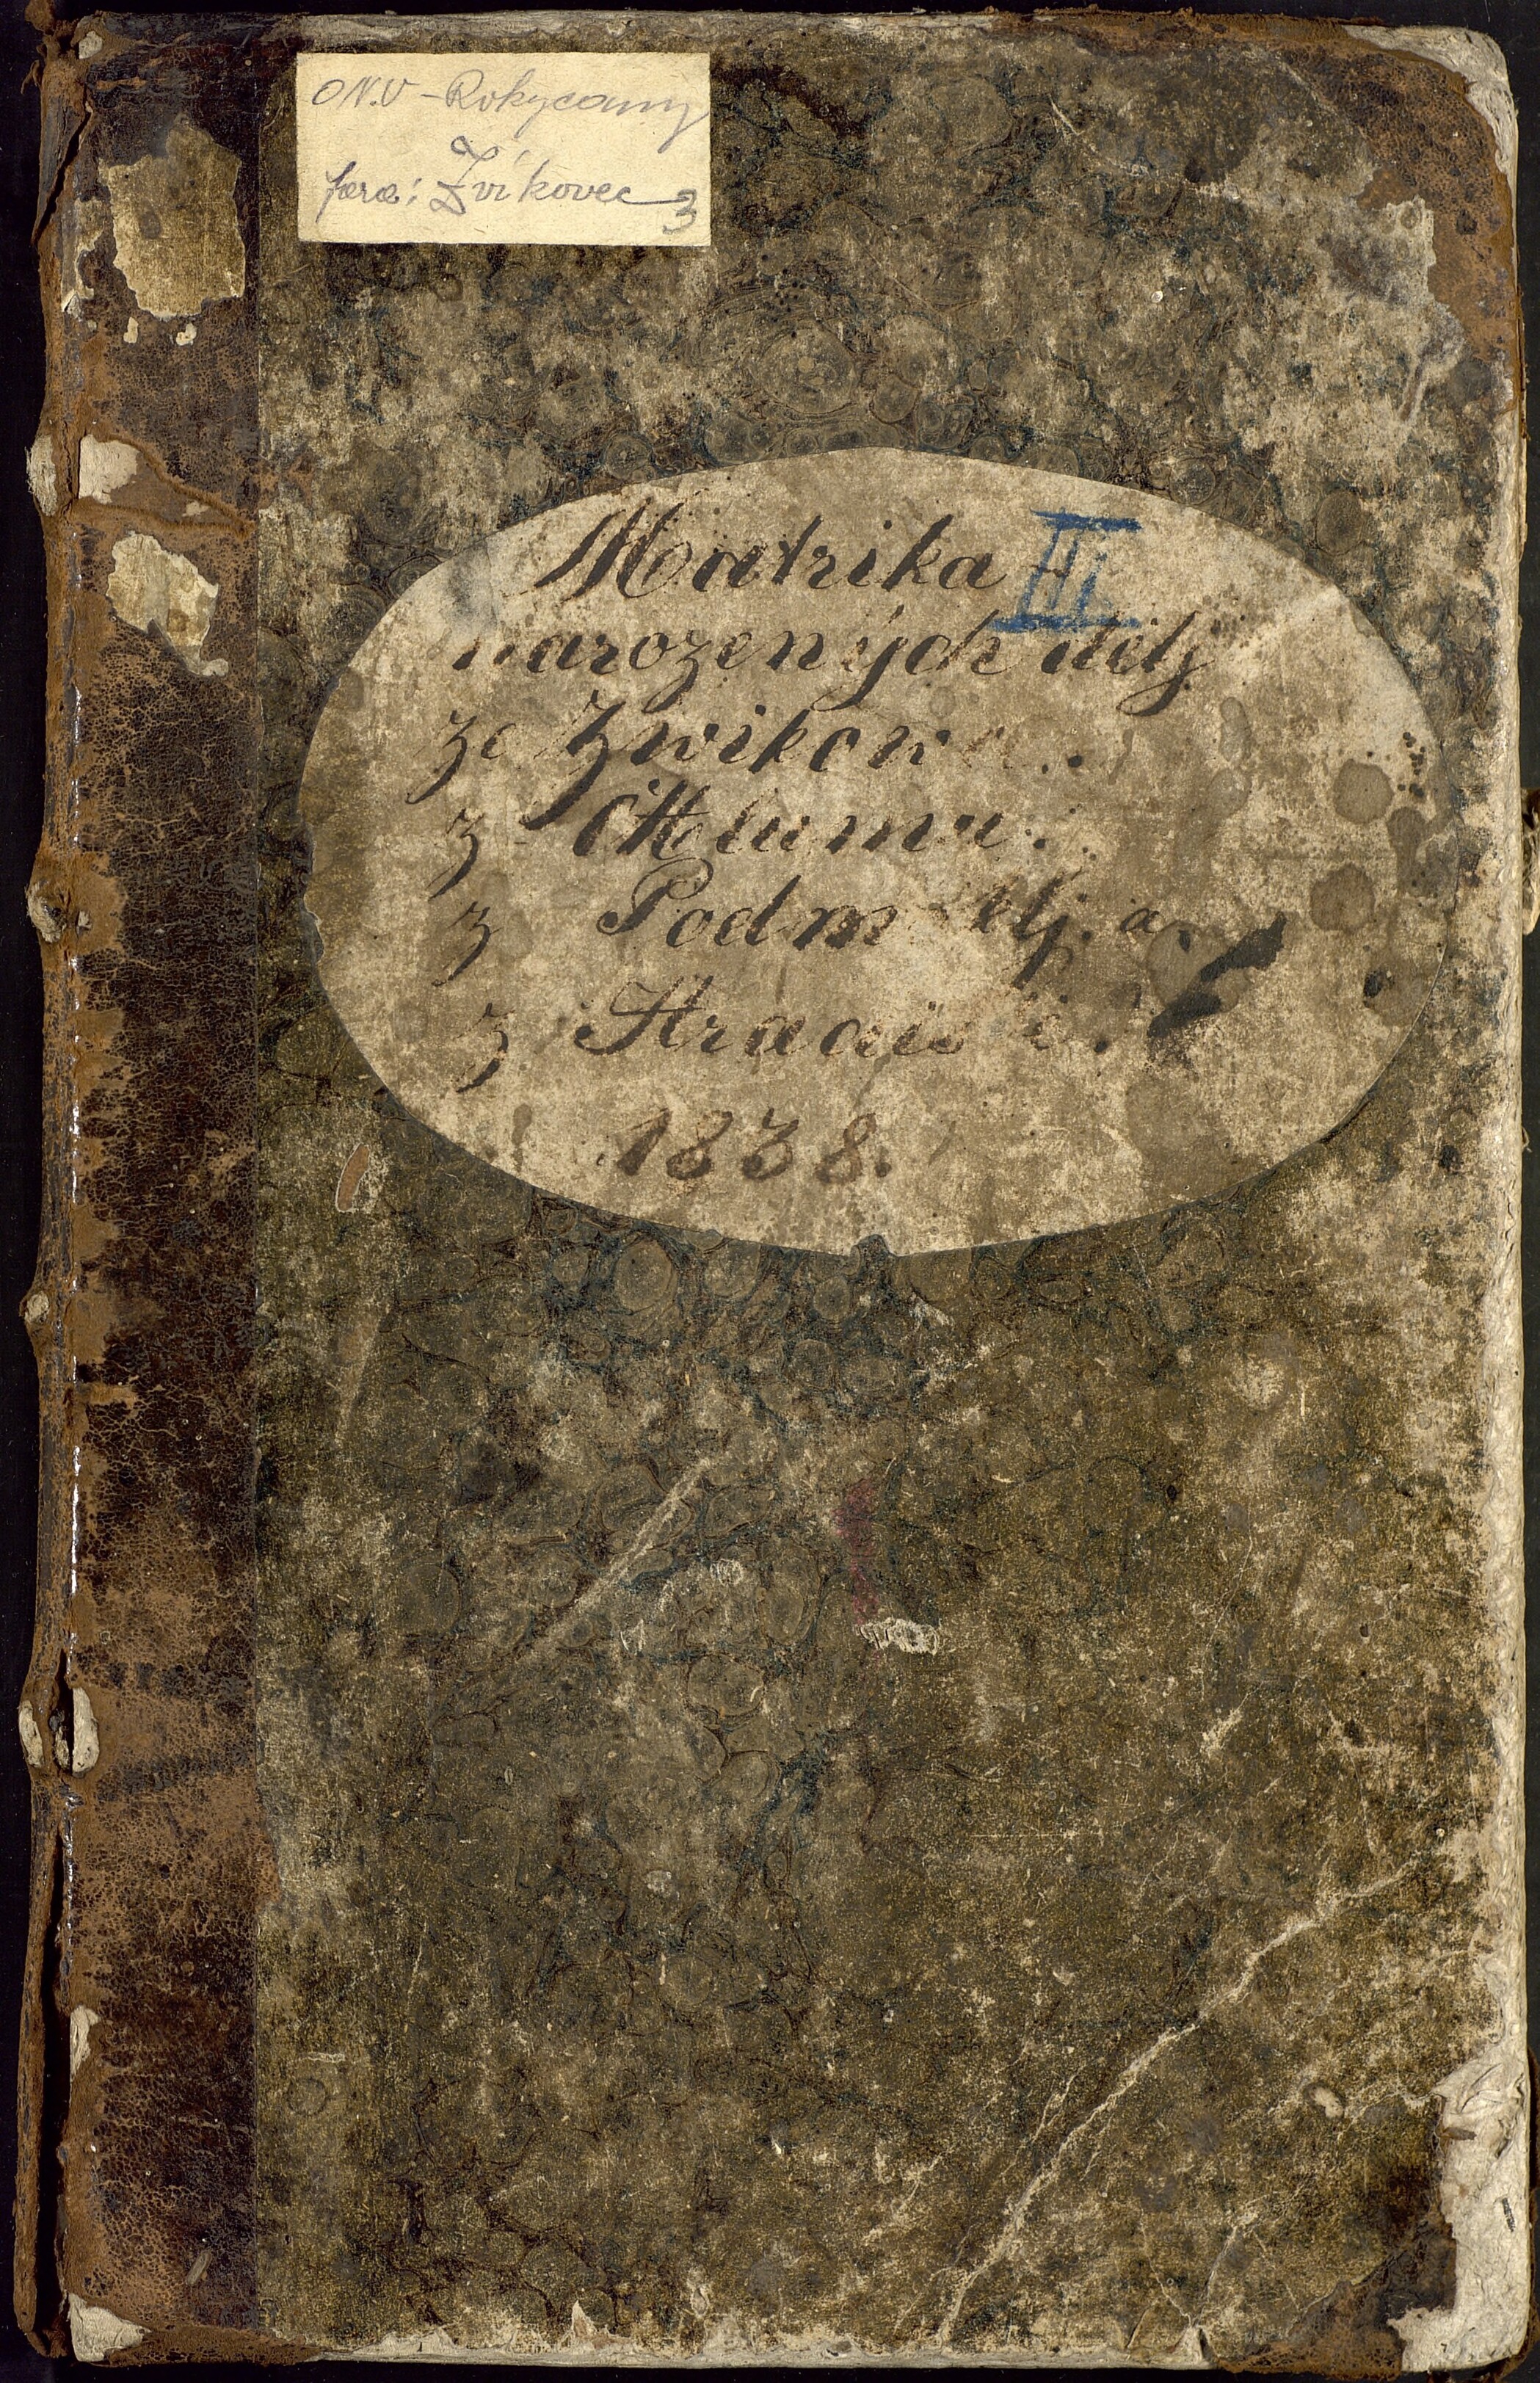 O N.V - Rokycany
fara: Zvíkovec 3
Matrika III
narozených dětj
ze Zwikowa.
z Chlumu.
z Podm
z
1838.